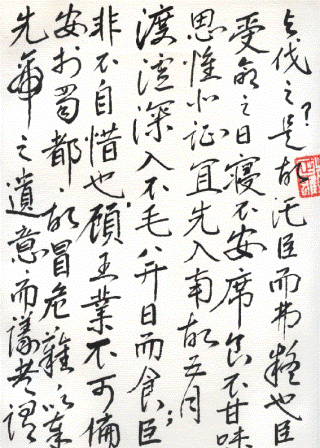 与伐之?是故託臣而弗疑也臣
受命之日寢不安席食不甘味
思惟北征宜先入南故五月
渡瀘深入不毛,并日而食;臣
非不自惜也顧王業不可偏
安扵蜀都,故冒危難以奉
先帝之遺意而議者謂